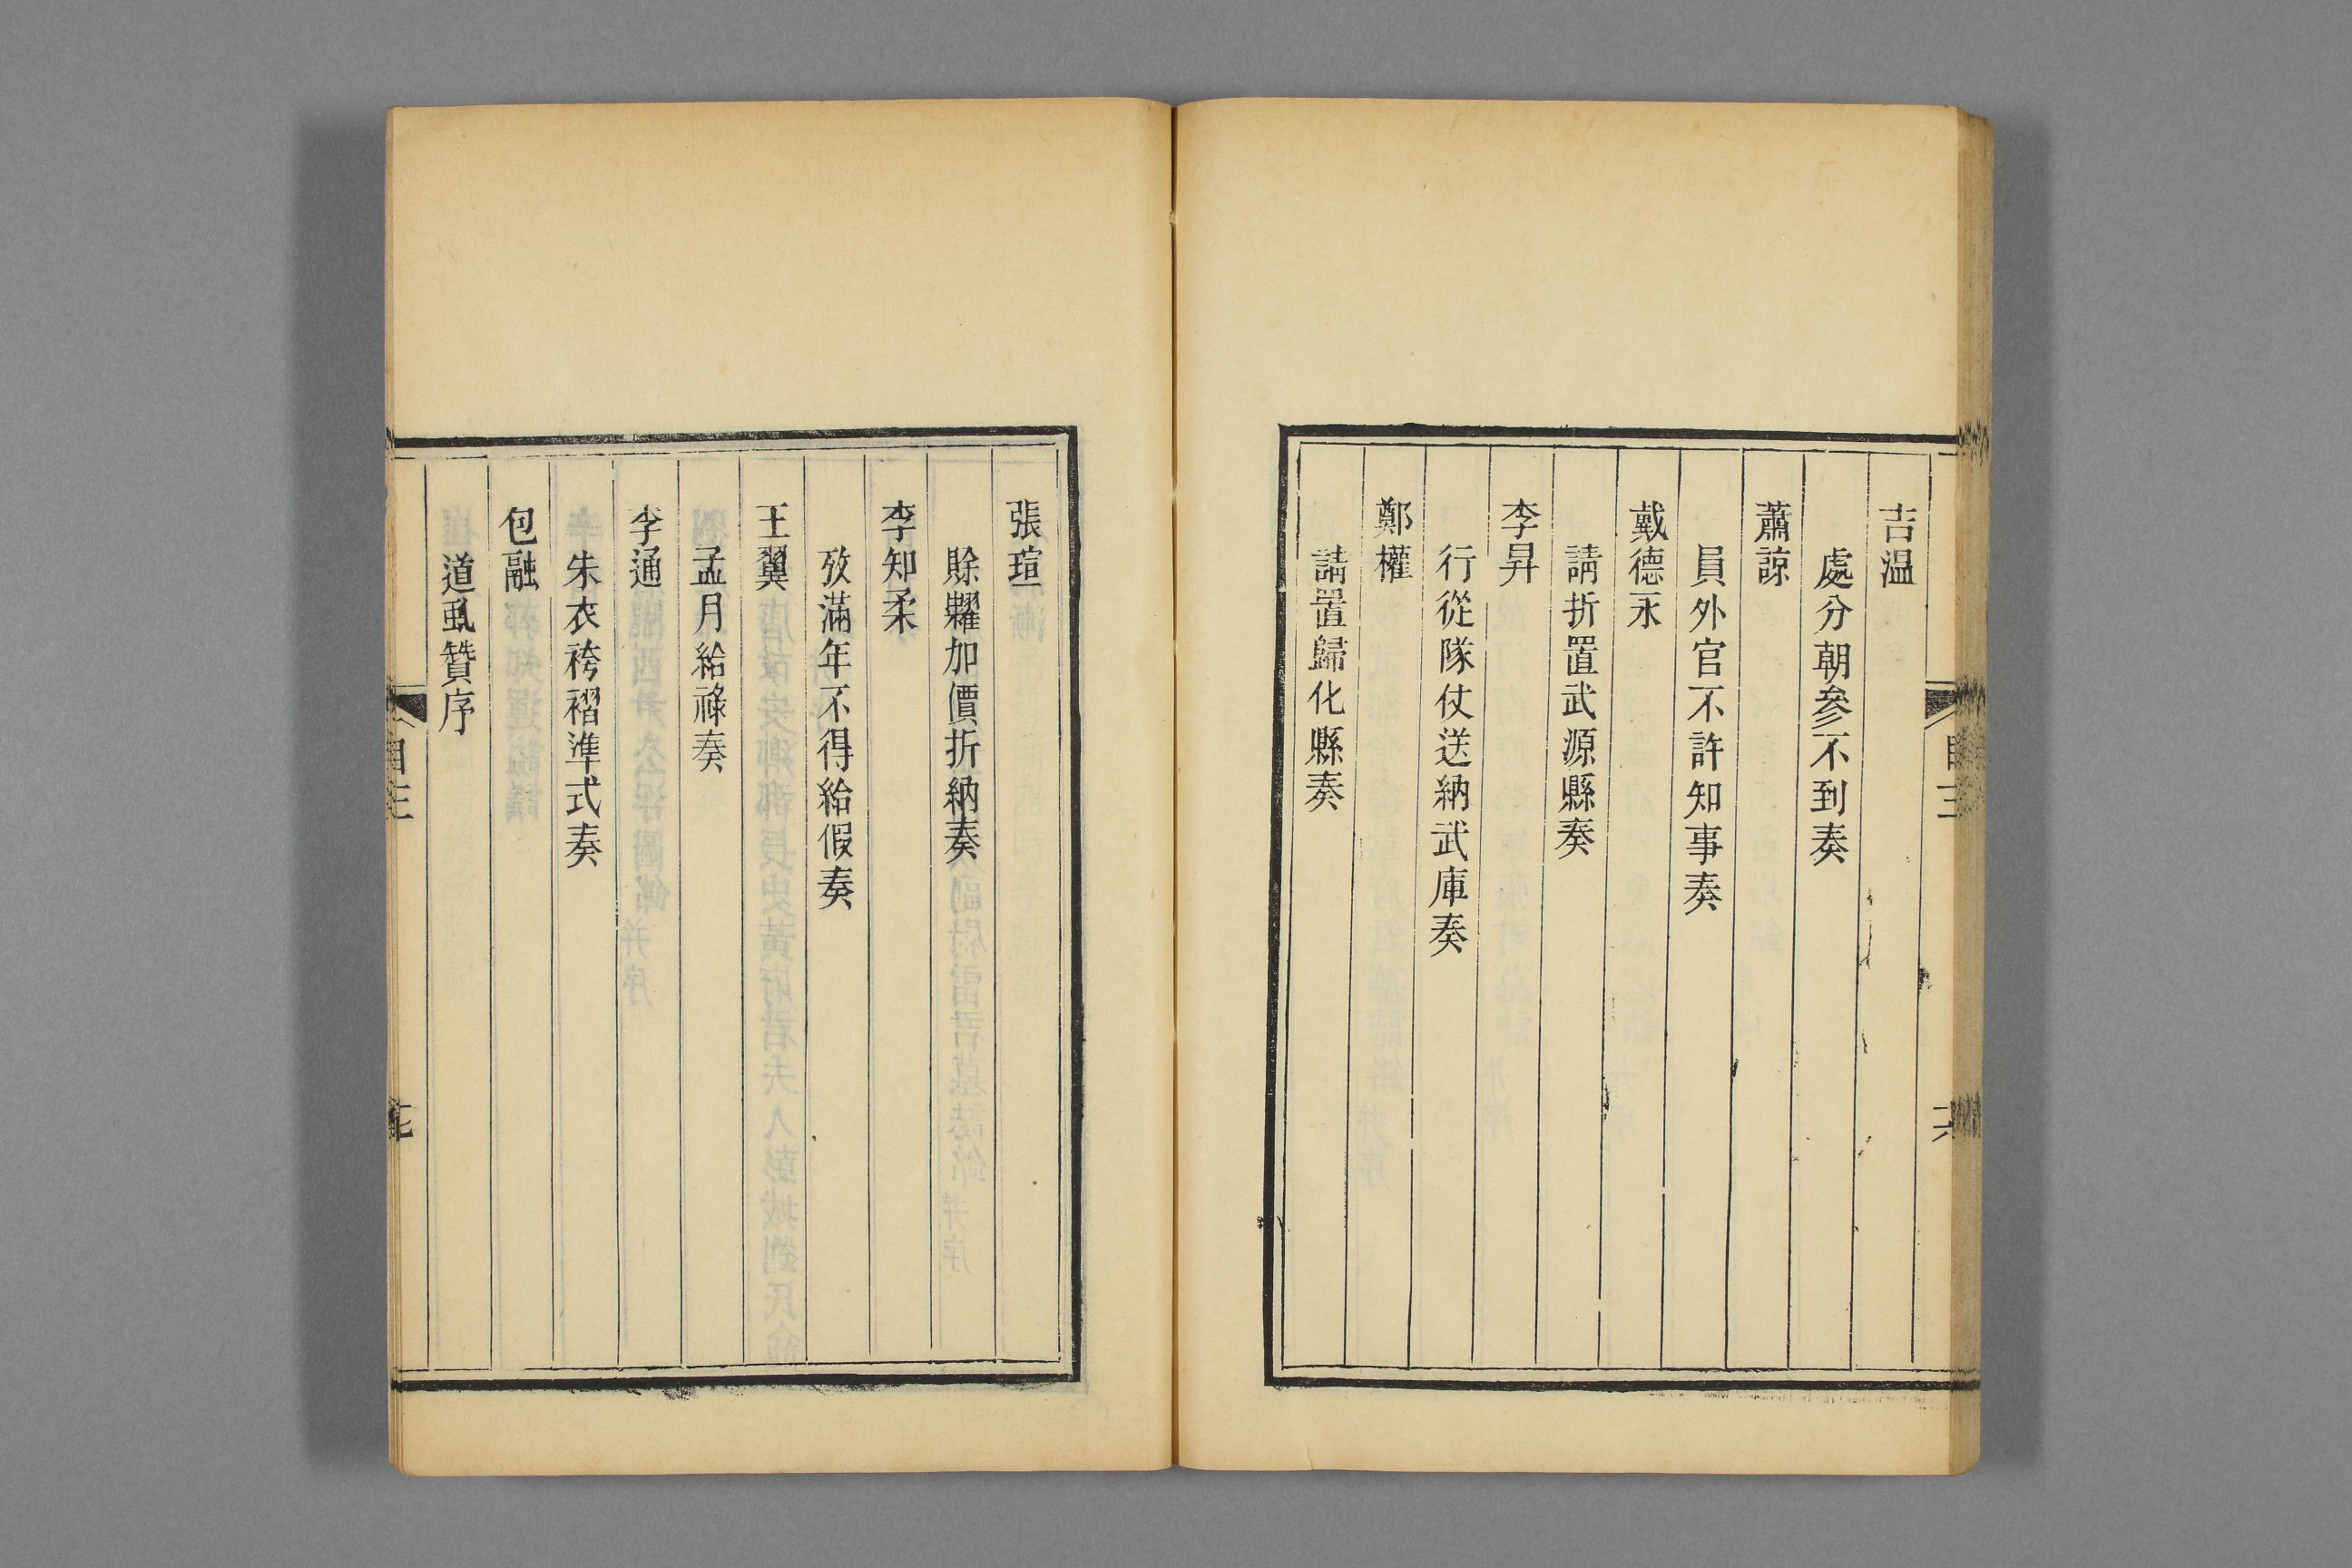 吉温
處分朝参不到奏
蕭諒
員外官不許知事奏
戴德永
請折置武源縣奏
李昇
行從隊仗送納武庫奏
鄭權
請置歸化縣奏
目三
六
張瑄
賒糶加價折納奏
李知柔
攷滿年不得給假奏
王翼
孟月給祿奏
李通
朱衣袴褶準式奏
包融
道虱贊序
目三